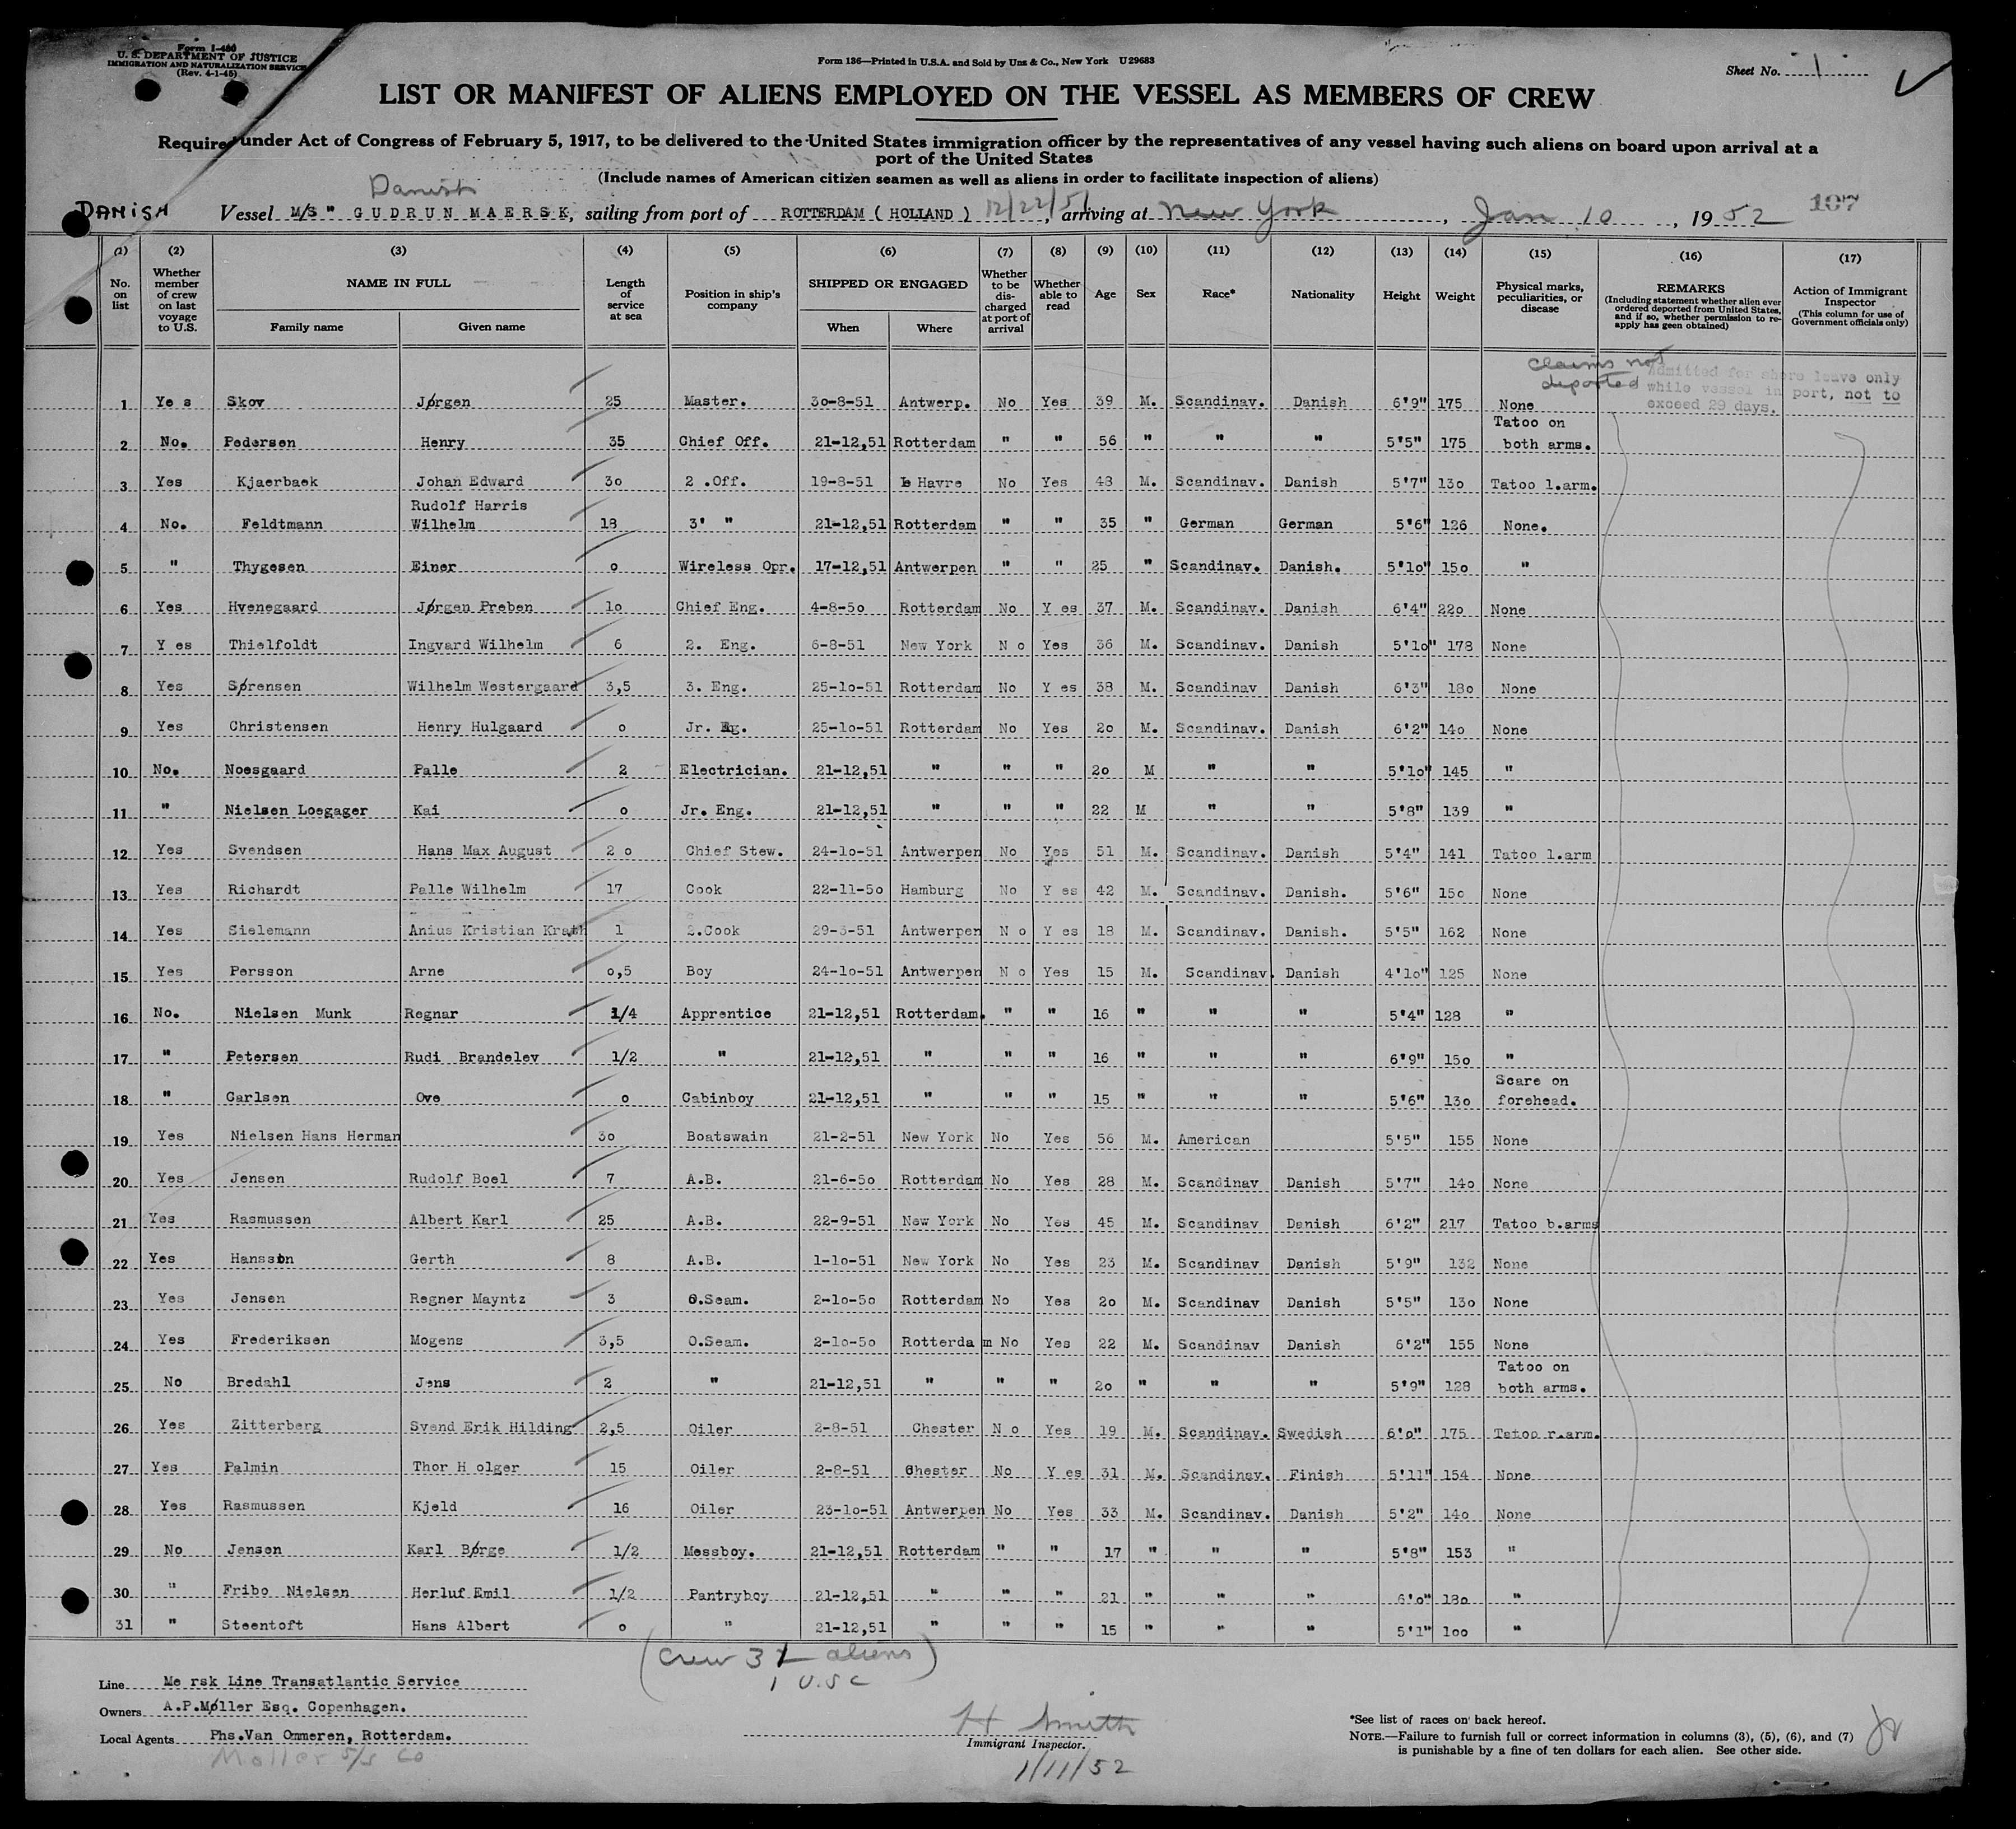 Form I-480
U. S. DEPARTMENT OF JUSTICE
IMMIGRATION AND NATURALIZATION SERVICE
(Rev. 4-1-45)
Form 136—Printed in U.S.A. and Sold by Unz & Co., New York U29683
Sheet No. 1
LIST OR MANIFEST OF ALIENS EMPLOYED ON THE VESSEL AS MEMBERS OF CREW
Required under Act of Congress of February 5, 1917, to be delivered to the United States immigration officer by the representatives of any vessel having such aliens on board upon arrival at a
port of the United States
(Include names of American citizen seamen as well as aliens in order to facilitate inspection of aliens)
Danish
DANISH Vessel M/S " GUDRUN MAERSK, sailing from port of ROTTERDAM ( HOLLAND ) 12/22/51, arriving at New York, Jan 10, 1952 107
(1) (2) (3) (4) (5) (6) (7) (8) (9) (10) (11) (12) (13) (14) (15) (16) (17)
No. on list
Whether member of crew on last voyage to U.S.
NAME IN FULL
Family name Given name
Length of service at sea
Position in ship's company
SHIPPED OR ENGAGED
When Where
Whether to be dis-charged at port of arrival
Whether able to read
Age Sex Race* Nationality Height Weight
Physical marks, peculiarities, or disease
REMARKS
(Including statement whether alien ever ordered deported from United States, and if so, whether permission to re-apply has geen obtained)
Action of Immigrant Inspector
(This column for use of Government officials only)
claims not
deported
Admitted for shore leave only
while vessel in port, not to
exceed 29 days.
1 Ye s Skov Jørgen 25 Master. 30-8-51 Antwerp. No Yes 39 M. Scandinav. Danish 6'9" 175 None
2 No. Pedersen Henry 35 Chief Off. 21-12,51 Rotterdam " " 56 " " " 5'5" 175 Tatoo on both arms.
3 Yes Kjaerbaek Johan Edward 30 2 .Off. 19-8-51 Le Havre No Yes 48 M. Scandinav. Danish 5'7" 130 Tatoo l.arm.
4 No. Feldtmann Rudolf Harris Wilhelm 18 3' " 21-12,51 Rotterdam " " 35 " German German 5'6" 126 None.
5 " Thygesen Einer o Wireless Opr. 17-12,51 Antwerpen " " 25 " Scandinav. Danish. 5'10" 150 "
6 Yes Hvenegaard Jørgen Preben 10 Chief Eng. 4-8-50 Rotterdam No Y es 37 M. Scandinav. Danish 6'4" 220 None
7 Y es Thielfoldt Ingvard Wilhelm 6 2. Eng. 6-8-51 New York N o Yes 36 M. Scandinav. Danish 5'10" 178 None
8 Yes Sørensen Wilhelm Westergaard 3,5 3. Eng. 25-10-51 Rotterdam No Y es 38 M. Scandinav Danish 6'3" 180 None
9 Yes Christensen Henry Hulgaard o Jr. Eg. 25-10-51 Rotterdam No Yes 20 M. Scandinav. Danish 6'2" 140 None
10 No. Noesgaard Palle 2 Electrician. 21-12,51 " " " 20 M " " 5'10" 145 "
11 " Nielsen Loegager Kai o Jr. Eng. 21-12,51 " " " 22 M " " 5'8" 139 "
12 Yes Svendsen Hans Max August 2 o Chief Stew. 24-10-51 Antwerpen No Yes 51 M. Scandinav. Danish 5'4" 141 Tatoo l.arm
13 Yes Richardt Palle Wilhelm 17 Cook 22-11-50 Hamburg No Y es 42 M. Scandinav. Danish. 5'6" 150 None
14 Yes Sielemann Anius Kristian 1 2.Cook 29-3-51 Antwerpen N o Y es 18 M. Scandinav. Danish. 5'5" 162 None
15 Yes Persson Arne 0,5 Boy 24-10-51 Antwerpen N o Yes 15 M. Scandinav. Danish 4'10" 125 None
16 No. Nielsen Munk Regnar 1/4 Apprentice 21-12,51 Rotterdam. " " 16 " " " 5'4" 128 "
17 " Petersen Rudi Brandelev 1/2 " 21-12,51 " " " 16 " " " 6'9" 150 "
18 " Carlsen Ove o Cabinboy 21-12,51 " " " 15 " " " 5'6" 130 Scare on forehead.
19 Yes Nielsen Hans Herman 30 Boatswain 21-2-51 New York No Yes 56 M. American 5'5" 155 None
20 Yes Jensen Rudolf Boel 7 A.B. 21-6-50 Rotterdam No Yes 28 M. Scandinav Danish 5'7" 140 None
21 Yes Rasmussen Albert Karl 25 A.B. 22-9-51 New York No Yes 45 M. Scandinav Danish 6'2" 217 Tatoo b.arms
22 Yes Hansson Gerth 8 A.B. 1-10-51 New York No Yes 23 M. Scandinav Danish 5'9" 132 None
23 Yes Jensen Regner Mayntz 3 O.Seam. 2-10-50 Rotterdam No Yes 20 M. Scandinav Danish 5'5" 130 None
24 Yes Frederiksen Mogens 3,5 O.Seam. 2-10-50 Rotterda m No Yes 22 M. Scandinav Danish 6'2" 155 None
25 No Bredahl Jens 2 " 21-12,51 " " " 20 " " " 5'9" 128 Tatoo on both arms.
26 Yes Zitterberg Svend Erik Hilding 2,5 Oiler 2-8-51 Chester N o Yes 19 M. Scandinav. Swedish 6'0" 175 Tatoo r.arm.
27 Yes Palmin Thor H olger 15 Oiler 2-8-51 Chester No Y es 31 M. Scandinav. Finish 5'11" 154 None
28 Yes Rasmussen Kjeld 16 Oiler 23-10-51 Antwerpen No Yes 33 M. Scandinav. Danish 5'2" 140 None
29 No Jensen Karl Børge 1/2 Messboy. 21-12,51 Rotterdam " " 17 " " " 5'8" 153 "
30 " Fribo Nielsen Herluf Emil 1/2 Pantryboy 21-12,51 " " " 21 " " " 6'0" 180 "
31 " Steentoft Hans Albert o " 21-12,51 " " " 15 " " " 5'1" 100 "
(Crew 31 aliens)
1 U.S C
Line Me rsk Line Transatlantic Service
Owners A.P.Møller Esq. Copenhagen.
Local Agents Phs.Van Ommeren, Rotterdam.
Moller S/S Co
H Smith
Immigrant Inspector.
1/11/52
*See list of races on back hereof.
NOTE.—Failure to furnish full or correct information in columns (3), (5), (6), and (7)
is punishable by a fine of ten dollars for each alien. See other side.